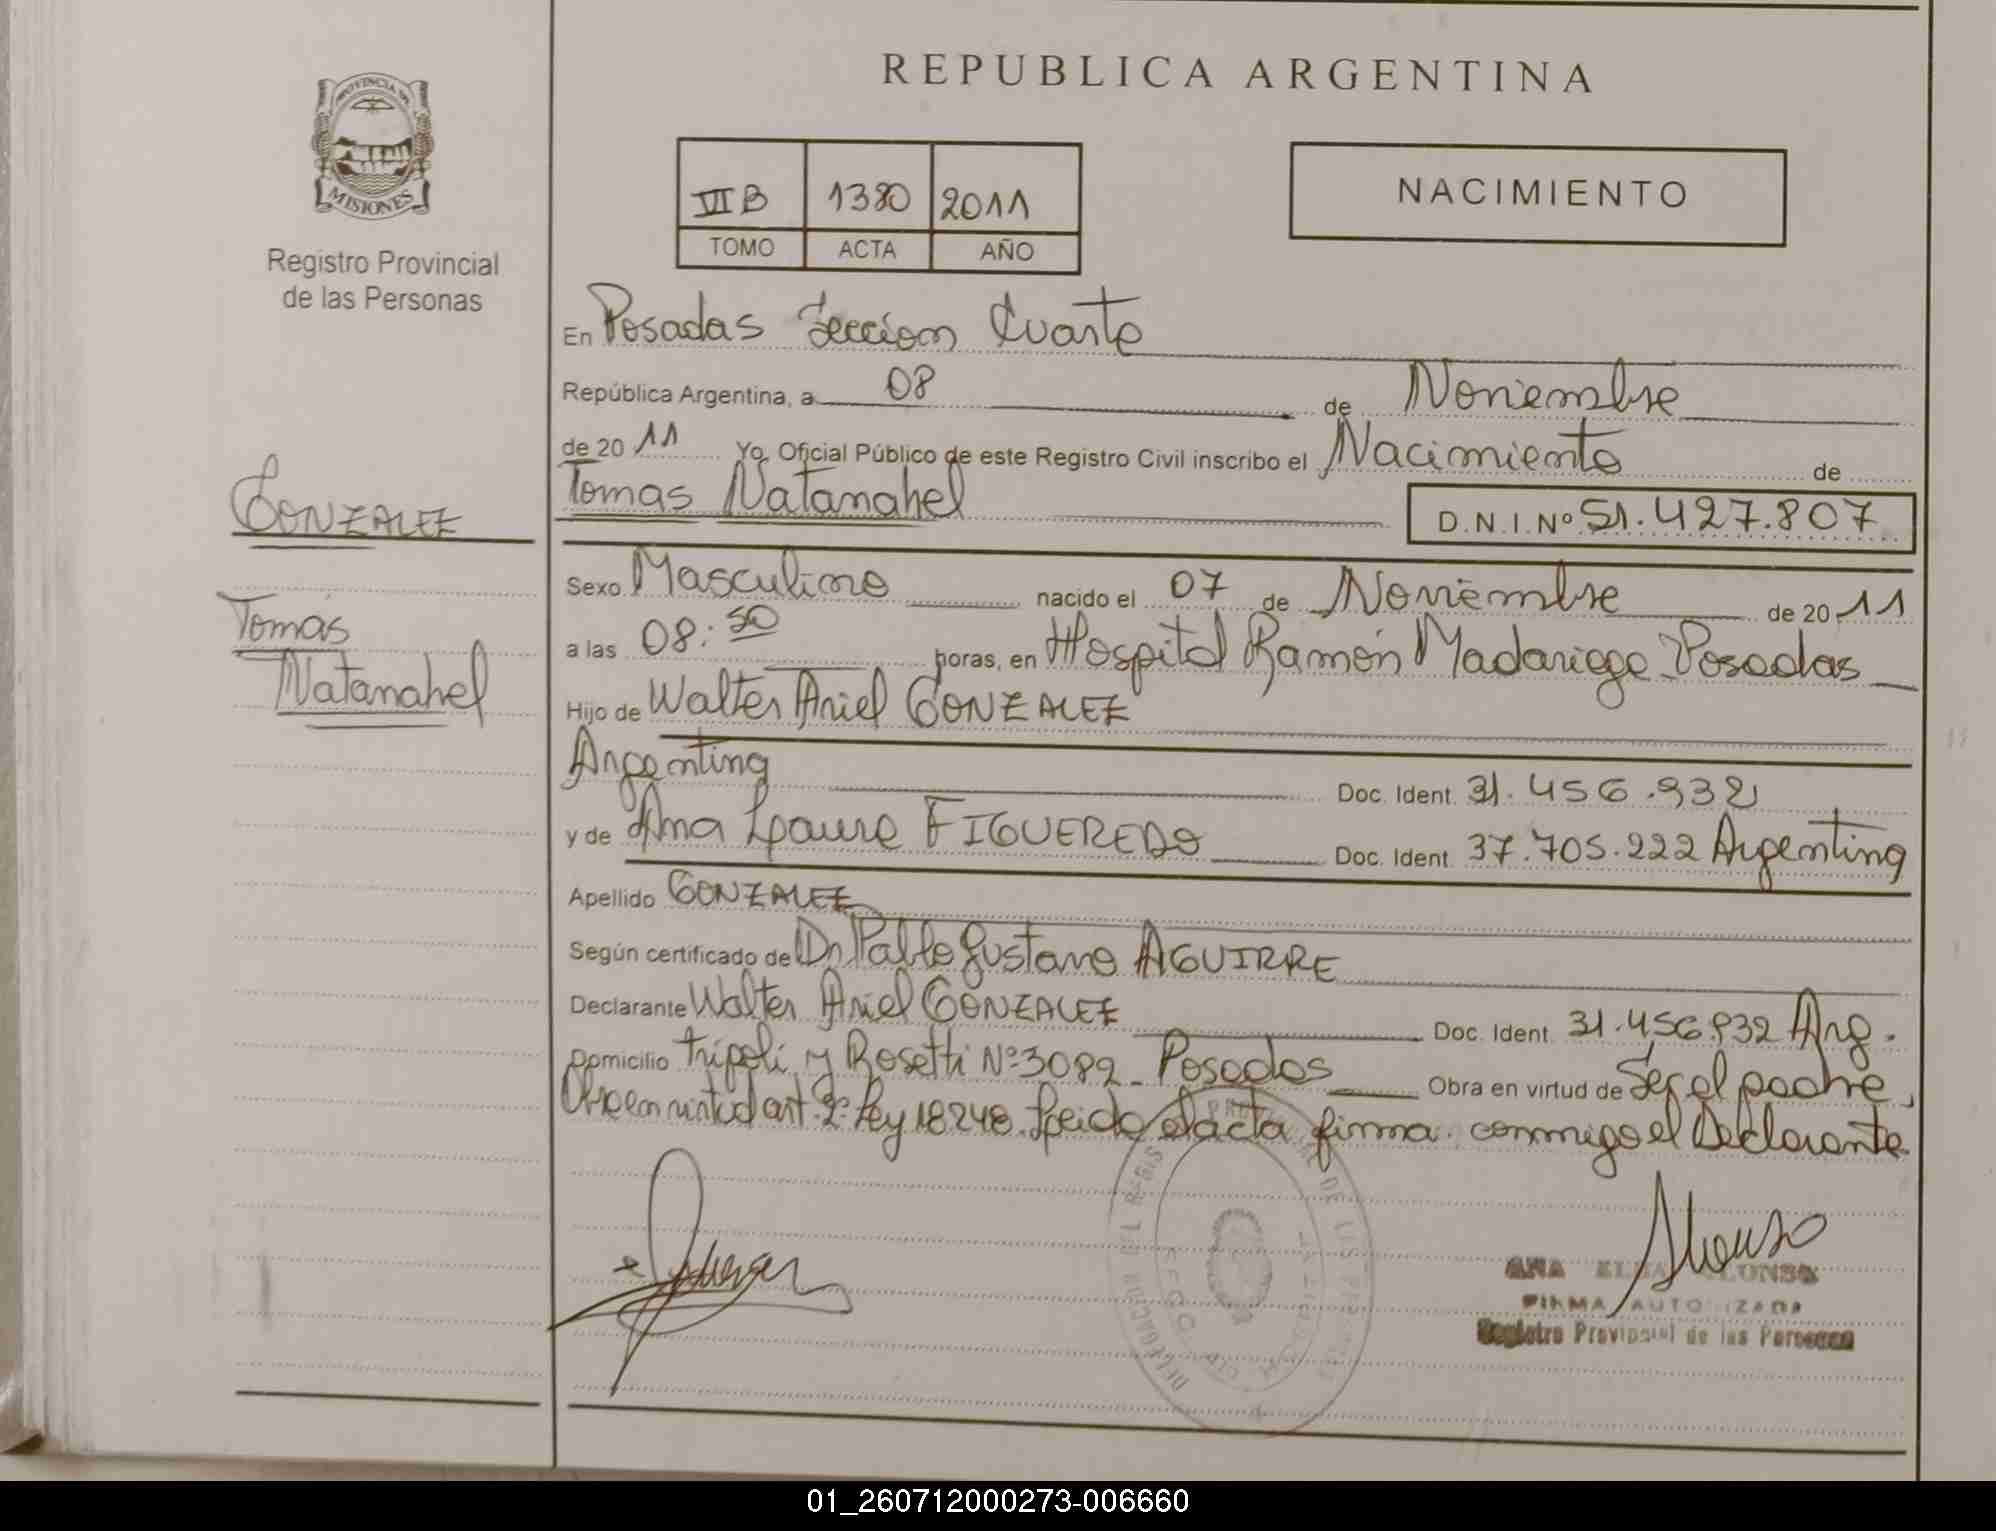 REPUBLICA ARGENTINA
PROVINCIA DE
MISIONES
Registro Provincial
de las Personas
VII B 1380 2011
TOMO ACTA AÑO
NACIMIENTO
GONZALEZ
Tomás
Natanahel
En Posadas Seccion Cuarta
República Argentina, a 08 de Noviembre
de 2011 Yo, Oficial Público de este Registro Civil inscribo el Nacimiento de
Tomas Natanahel D.N.I. Nº 51.427.807
Sexo Masculino nacido el 07 de Noviembre de 2011
a las 08:50 horas, en Hospital Ramón Madariaga Posadas
Hijo de Walter Ariel GONZALEZ
Argentina Doc. Ident. 31.456.932
y de Ana Laura FIGUEREDO Doc. Ident. 37.705.222 Argentina
Apellido GONZALEZ
Según certificado de Dr. Pablo Gustavo AGUIRRE
Declarante Walter Ariel GONZALEZ Doc. Ident. 31.456.932 Arg.
Domicilio Tripoli y Rosetti Nº 3082 - Posadas Obra en virtud de Ser el padre,
Obra en virtud art. 2º Ley 18248. Leida el acta firma conmigo el Declarante
Alonso
ANA ELSA ALONSO
FIRMA AUTORIZADA
Registro Provincial de las Personas
01_260712000273-006660